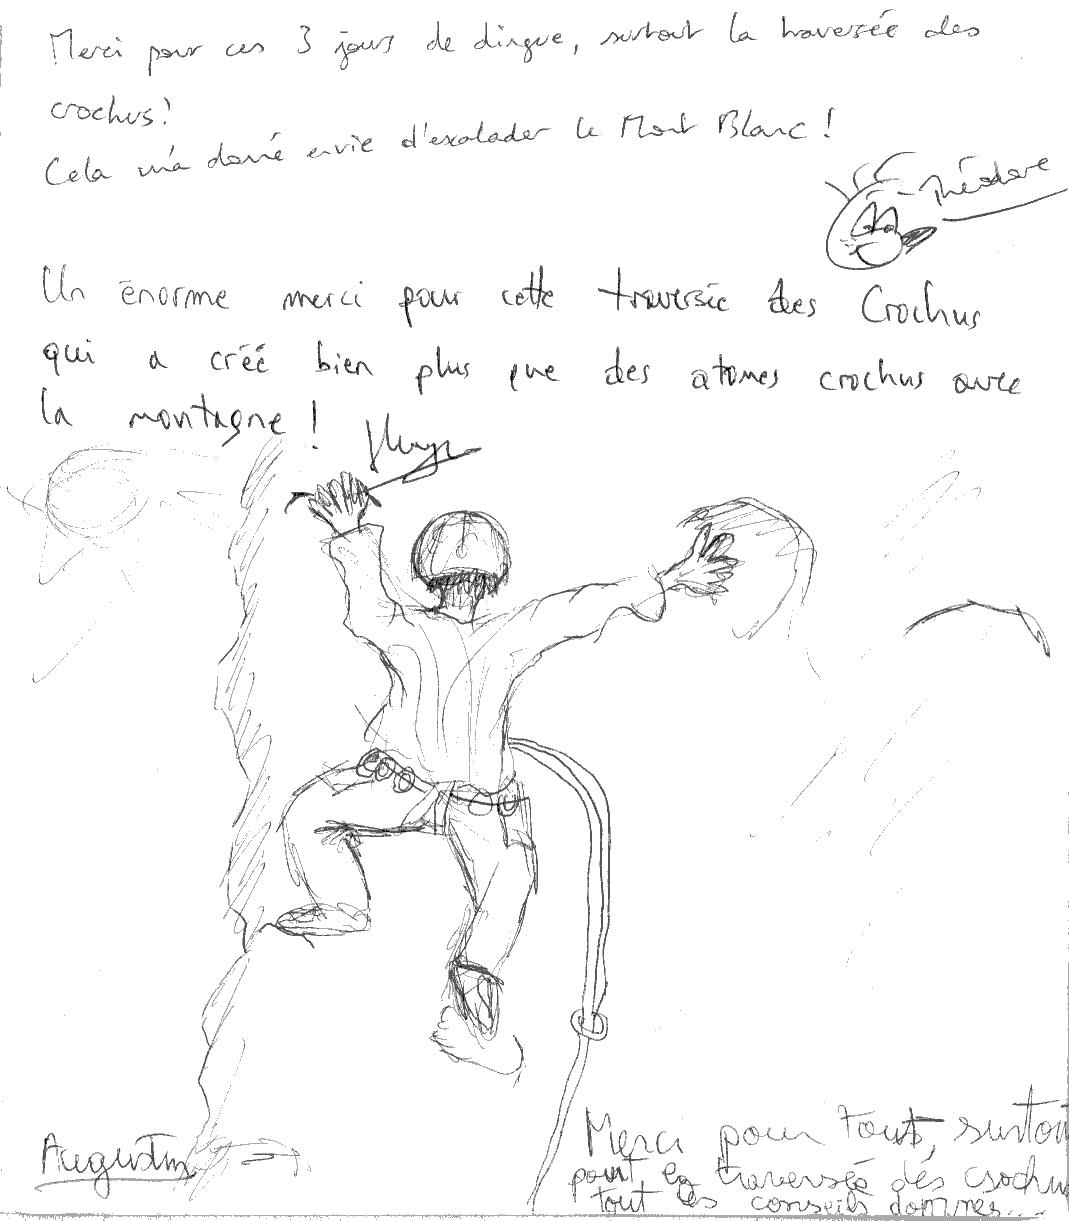 Merci pour ces 3 jours de dingue, surtout la traversée des
crochus!
Cela m'a donné envie d'escalader le Mont Blanc !
Théodore
Un énorme merci pour cette traversée des Crochus
qui a créé bien plus que des atomes crochus avec
la montagne !
Augustin
Merci pour tout, surtout
pour la traversée des crochu
tout les conseils donnés...